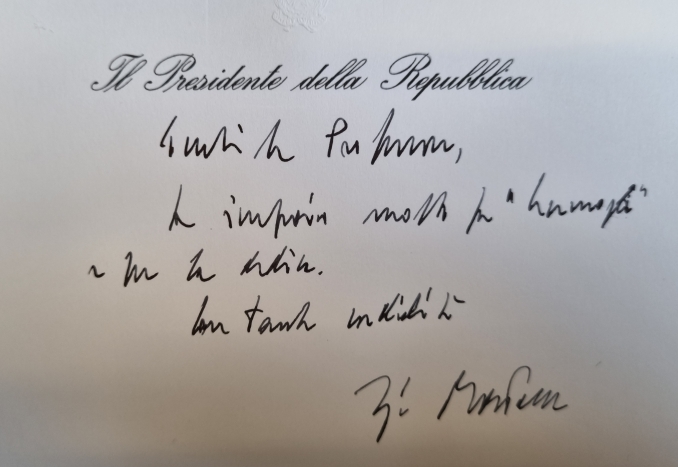 Il Presidente della Repubblica
Gentile Professore,
La ringrazio molto per "
e per la dedica.
Con tanta cordialità
Mattarella